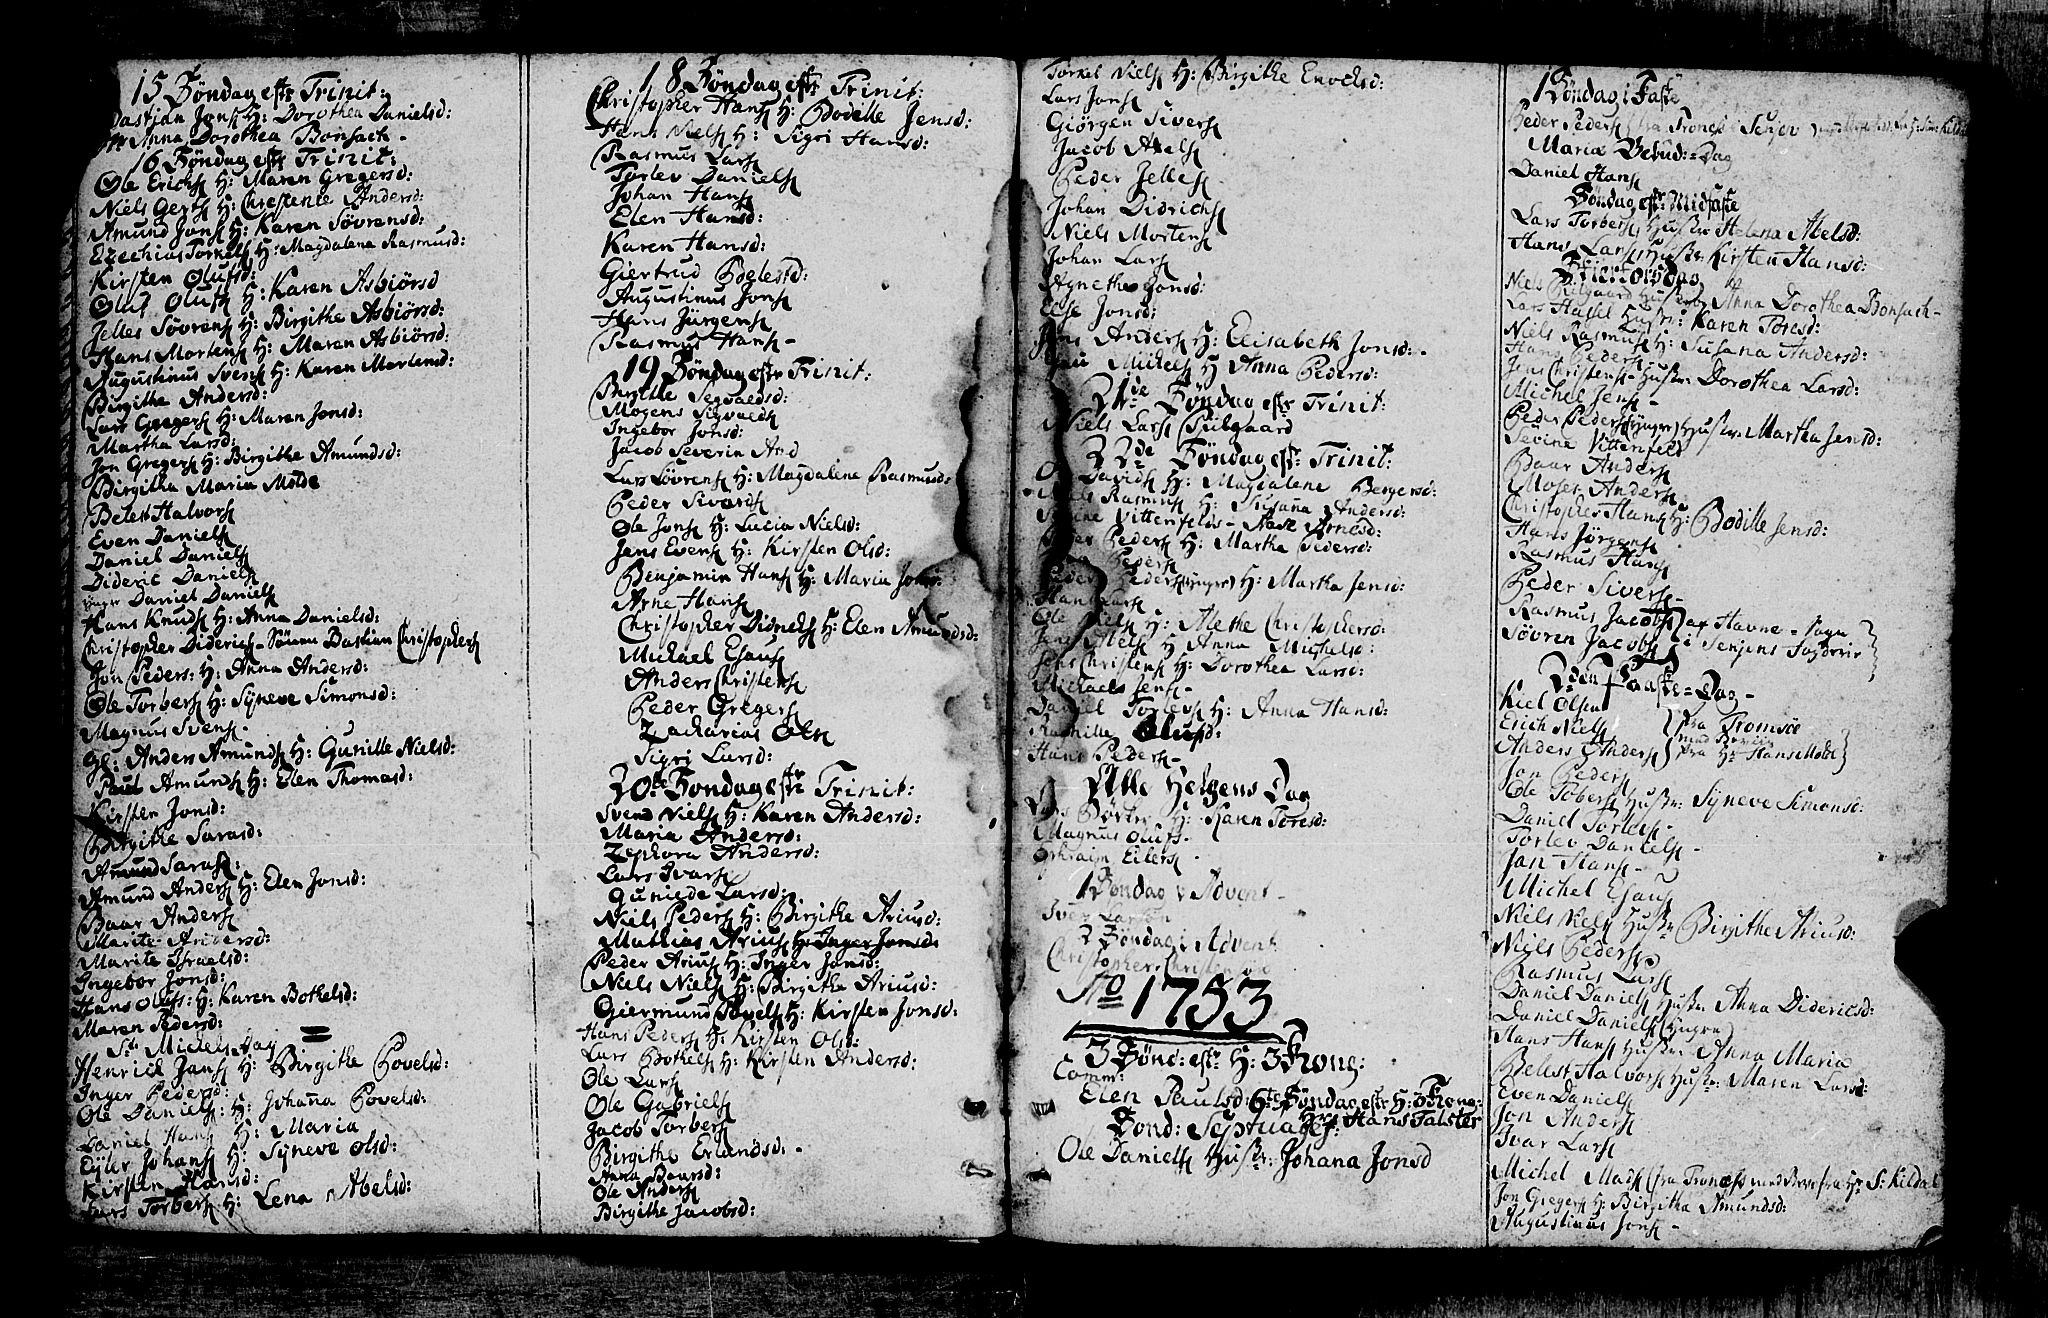 15 Söndag eftr Trinit:
Bastian Jonss H: Dorothea Danielsd:
Anna Dorothea Bonsach -
16 Söndag eftr Trinit:
Ole Erichss H: Maren Gregersd:
Niels Gertss H: Chrestente Andersd:
Amund Jonss H: Karen Sövrensd:
Ezechias Torkelss H: Magdalena Rasmusd:
Kirsten Olufsd:
Oluf Olufss H: Karen Asbiörsd
Jelles Sövrenss H: Birgithe Asbiörsd:
Hans Mortenss H: Maren Asbiörsd:
Augustinus Svenss H: Karen Mortensd:
Birgithe Andersd:
Lars Gregerss H: Maren Jonsd:
Martha Larsd:
Jon Gregerss H: Birgithe Amundsd:
Birgitha Maria Molde
Belest Halvorss
Even Danielss
Daniel Danielss
Dideric Danielss
Daniel Danielss
Hans Knudss H: Anna Danielsd:
Christopher Diderichss - Sönnen Bastian Christopherss
Jon Peders: H: Anna Andersd:
Ole Torberss H: Syneve Simonsd:
Magnus Svens -
Anders Amundss H: Gunille Nielsd:
Paul Amundss H: Elen Thomasd:
Kirsten Jonsd:
Birgithe Sarasd:
Amund Sarass:
Amund Anderss H: Elen Jonsd:
Baar Anderss
Marite Aribersd:
Marite Israelsd:
Ingebor Jonsd:
Hans Olufs: H: Karen Bothelsd:
Maren Pedersd:
Sti Michels Dag
Henrich Janss H: Birgithe Povelsd:
Inger Pedersd:
Ole Danielss: H: Johana Povelsd:
Daniel Hanss H: Maria
Eyler Johanss H: Syneve Olsd:
Kirsten Hansd:
Lars Torberss H: Lena Abelsd:
18 Söndag eftr Trinit:
Christopher Hanss H: Bodelle Jensd:
Hans Nielss H: Sigri Hansd:
Rasmus Larss
Torlev Danielss
Johan Hanss
Elen Hansd:
Karen Hansd:
Giertrud Pelesd:
Augustinus Jonss
Hans Jürgenss
Rasmus Hans -
19 Söndag eftr Trinit:
Birgithe Segvaldsd:
Mogens Sigvaldss
Ingebor Jonsd:
Jacob Severin
Lars Sövrenss H: Magdalena Rasmusd:
Peder Sivardss
Ole Jonss H: Lucia Nielsd:
Jens Evenss H: Kirsten Olsd:
Benjamin Hanss H: Maria
Arne Hanss
Christopher Didrichss H: Elen Amundsd:
Michael Esauss
Anders Christenss
Peder Gregerss
Zacharias Olss
Sigri Larsd:
20de Söndag eftr Trinit:
Svend Nielss H: Karen Andersd:
Maria Andersd:
Zephora Andersd:
Lars Ivarss
Gunilde Larsd:
Niels Pederss H: Birgithe Ariusd:
Mathias Ariuss H: Inger Jonsd:
Peder Ariuss H: Inger Jonsd:
Niels Nielss H: Birgitha Ariusd:
Giermund Povelss H: Kirsten Jonsd:
Hans Pederss H: Kirsten Olsd:
Lars Bothelss H: Kirsten Andersd:
Ole Larss
Ole Gabrielss
Jacob Torberss
Birgithe Erlandsd: -
Anna Baarsd:
Ole Anderss
Birgithe Jacobsd:
Torkel Nielss H: Birgithe Enochsd:
Lars Jonss
Giörgen Siverss
Jacob Axelss
Peder Jelless
Johan Didrichss
Niels Mortenss
Johan Larss
Agnethe Jonsd:
Else Jonsd:
Anderss H: Elisabeth Jonsd: -
Michelss H Anna Pedersd:
21de Söndag eftr Trinit:
Niels Larss Piilgaard
22de Söndag eftr Trinit:
Ole Davidss H: Magdalene Bergersd:
Niels Rasmuss H: Susana Andersd:
Sevine Vittenfelds - Aase Arnesd:
Pederss H: Martha Pedersd:
Pederss
Peder Pederss (ynger) H: Martha Jensd:
Hans Larss
Ole Nielss H: Alethe Christophersd:
Jens Abelss H: Anna Michelsd:
Jens Christenss H: Dorothea Larsd:
Michaels Jenss -
Daniel Torlevss H: Anna Hansd:
Olufsd:
Hans Pederss -
Alle Helgens Dag
H: Karen Toresd:
Magnus Olufs -
Ephraim Eilerss -
1 Söndag i Advent -
Iver Larsen
2 Söndag i Advent
Christopher Christens
Ao 1753
3 Sönd: eftr H: 3 Kong:
Comm:
Elen Paulsd: 6te Söndag eftr H: 3 Kong:
Sönd: Septuages: Hr Hans Falster
Ole Danielss Hustr: Johana Jonsd
1 Söndag i Faste
Peder Pederss fra Troness i Senjen
Mariæ Bebud: = Dag
Daniel Hanss
Söndag eftr Midfaste
Lars Torberss Hustr Helena Abelsd:
Hans Larss Hustr Kirsten Hansd:
Skiertorsdag
Niels Piilgaard Hustr Anna Dorothea Bonsach -
Lars Hustr: Karen Toresd:
Niels Rasmuss H: Susana Andersd:
Hans Pederss
Jens Christenss - Hustr Dorothea Larsd:
Michel Jens -
Peder Pederss (ynger) Hustr: Martha Jensd:
Sevine Vittenfeld
Baar Anderss
Moses Anderss
Christopher Hanss H: Bodille Jensd:
Hans Jörgenss
Rasmus Hanss
Peder Siverss -
Rasmus Jacobss } af Havne - Sogn
Sövren Jacobss } i Senjens Fogderie
2den Paaske = Dag -
Kiel Olsen
Erich Nielss } fra Tromsöe
Anders Anderss } fra Hr Hans Molde
Jon Pederss
Ole Toberss Hustr: Syneve Simonsd:
Daniel Torless -
Torlev Danielss -
Jan Hans -
Michel Esauss
Niels Nielss Hustr Birgithe Ariusd:
Niels Pederss
Rasmus Larss
Daniel Danielss Hustr Anna Didericsd:
Daniel Danielss (yngre)
Hans Hanss Hustr Anna Maria
Belest Halvorss Hustr: Maren Larsd:
Even Danielss
Jon Anderss
Ivar Larss
Michel Madss fra Troness med Brev fra Hr S: Kildal
Jon Gregerss H: Birgitha Amundsd:
Augustinus Jonss -